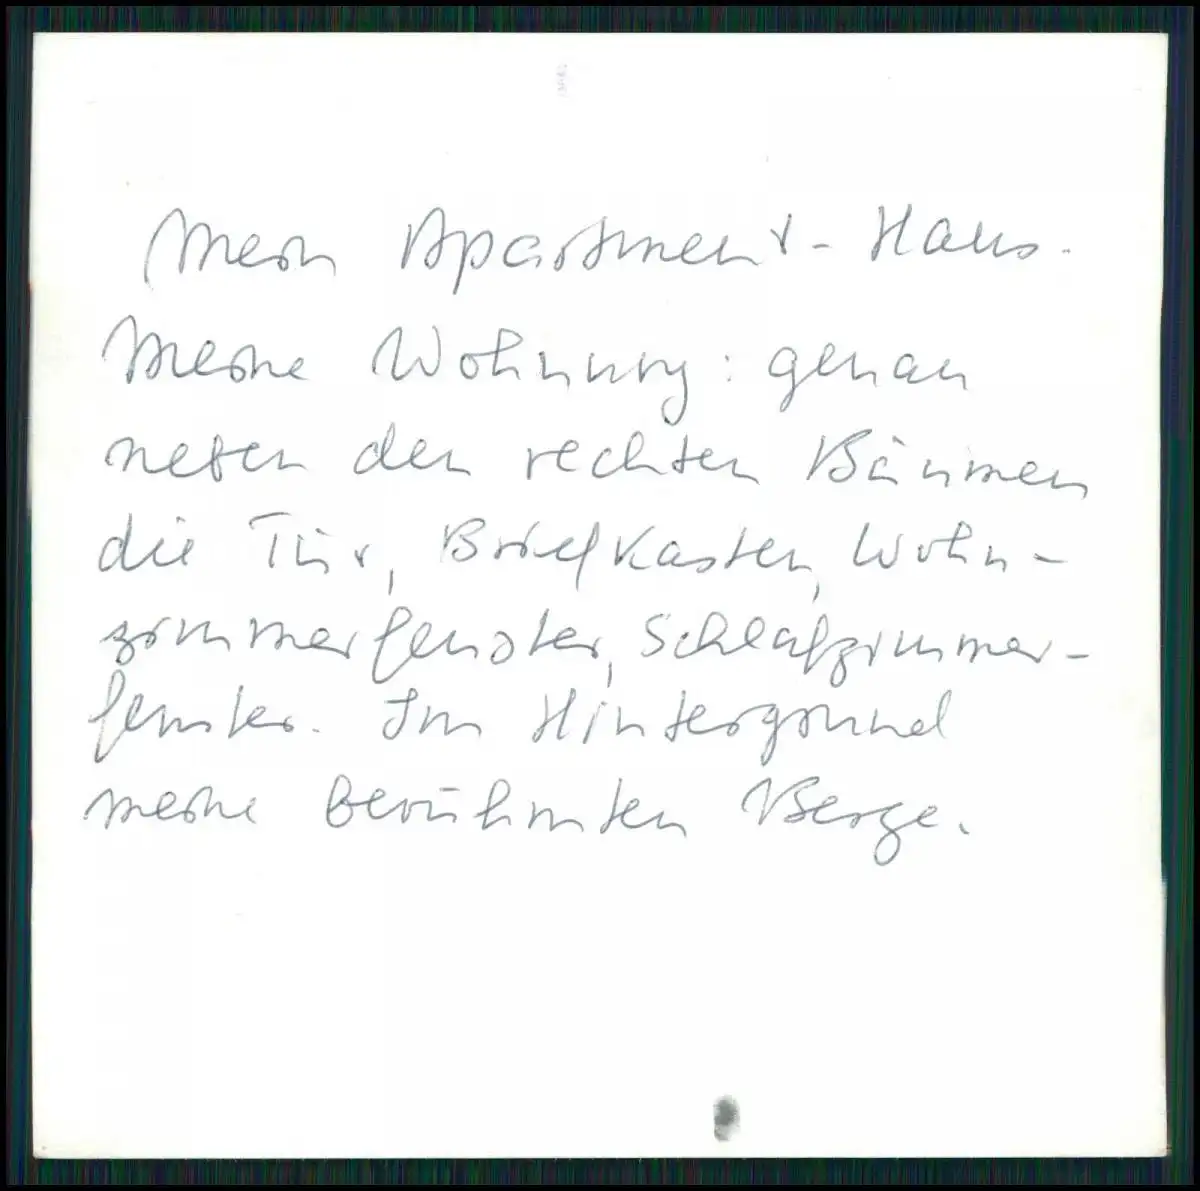 Mein Apartment-Haus.
Meine Wohnung: genau
neben den rechten Bäumen
die Tür, Briefkasten, Wohn-
zimmerfenster, Schlafzimmer-
fenster. Im Hintergrund
meine berühmten Berge.